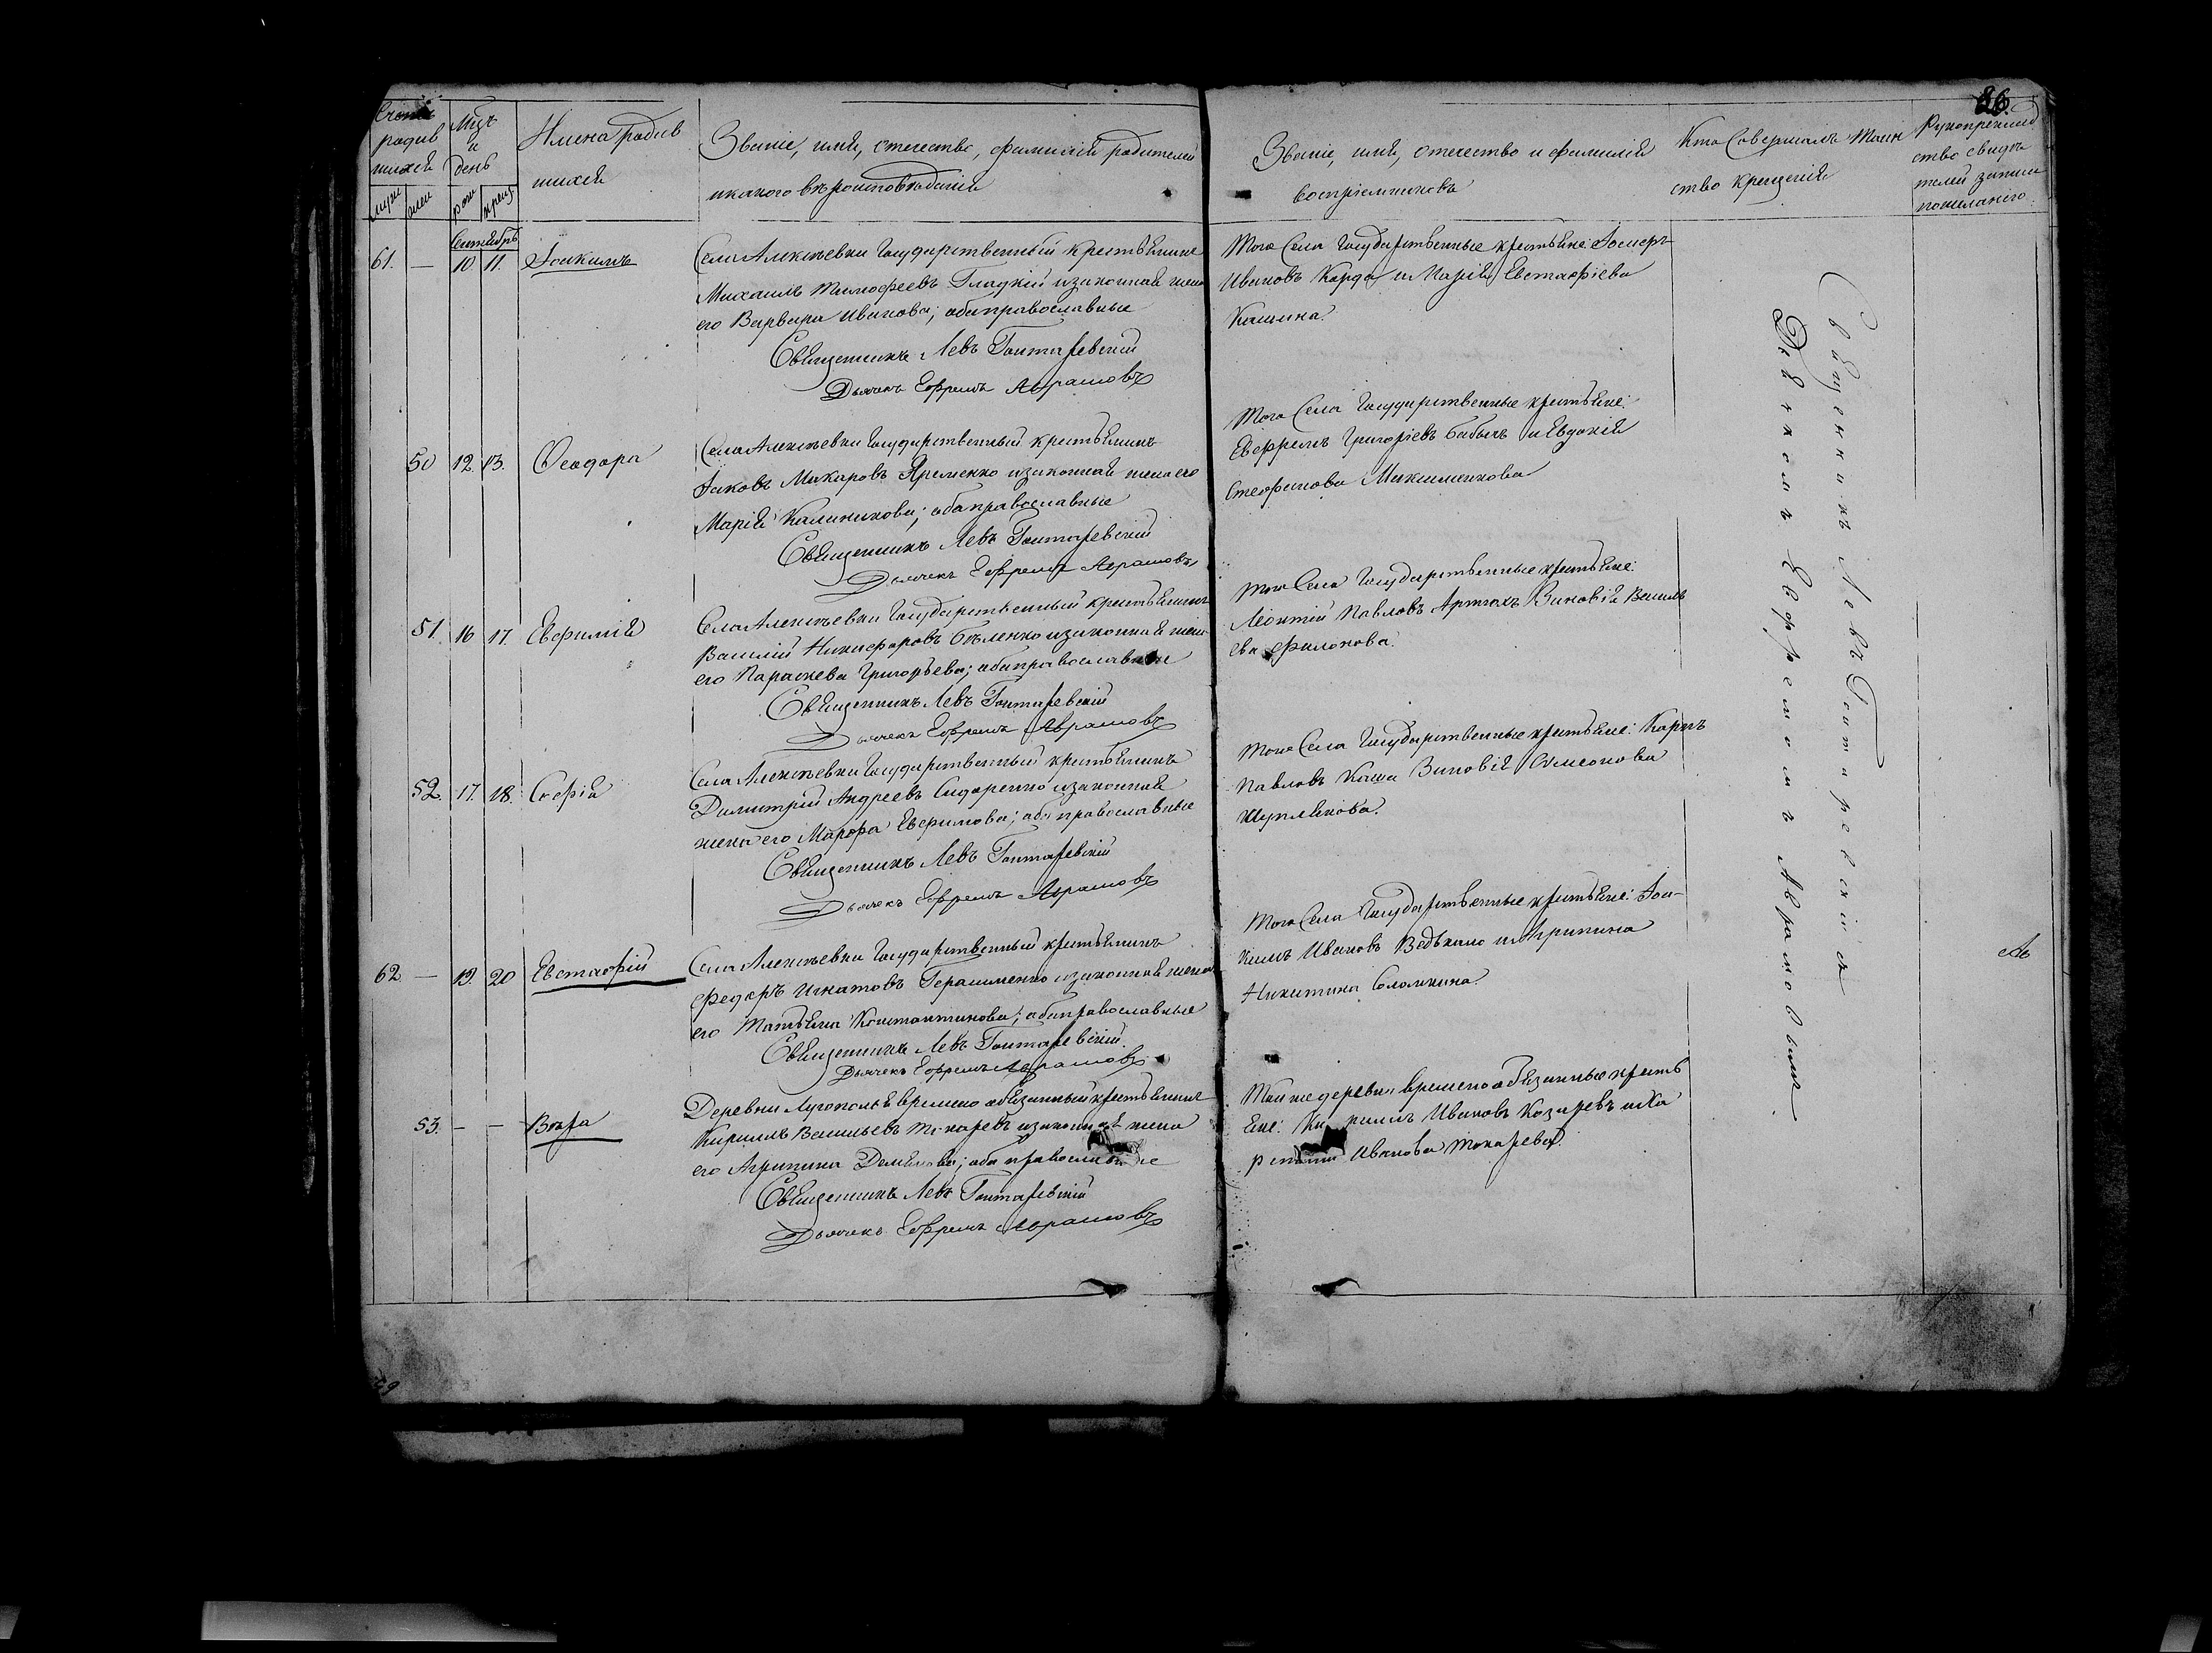 86.
Счетъ родив
шихся
муж жен
Мцъ
и
день
рож крещ
Имена родив
шихся
Званіе, имя, отечество, фамилія родителей
и какого вѣроисповѣданія
Званіе, имя, отечество и фамилія
воспріемниковъ
Кто совершалъ таин
ство крещенія
Рукоприклад
ство свидѣ
телей записи
по желанію
Сентябрь
61. — 10 11. Іоакимъ
Села Алексѣевки Государственный крестьянинъ
Михаилъ Тимофеевъ Гладкій и законная жена
его Варвара Иванова; оба православные
Священникъ Левъ Гонтаревскій
Дьячекъ Ефремъ Аврамовъ
Того Села Государственные крестьяне:
Ивановъ Корда и Марія Евстафіева
Кашина.
50 12. 13. Феодора
Села Алексѣевки Государственный крестьянинъ
Іаковъ Макаровъ Яременко и законная жена его
Марія Калиникова; оба православные
Священникъ Левъ Гонтаревскій
Дьячекъ Ефремъ Аврамовъ
Того Села Государственные крестьяне:
Евфремъ Григоріевъ Бабычъ и Евдокія
Стефанова Максименкова
51. 16 17. Евфимія
Села Алексѣевки Государственный крестьянинъ
Василій Никифоровъ Бѣленко и законная жена
его Параскева Григорьева; оба православные
Священникъ Левъ Гонтаревскій
Дьячекъ Ефремъ Аврамовъ
Того Села Государственные крестьяне:
Леонтій Павловъ Артюхъ Зиновія Василь
ева Филонова.
52. 17. 18. Софія
Села Алексѣевки Государственный крестьянинъ
Димитрій Андреевъ Сидоренко и законная
жена его Марфа Евфимова; оба православные
Священникъ Левъ Гонтаревскій
Дьячекъ Ефремъ Аврамовъ
Того Села Государственные крестьяне: Карпъ
Павловъ Каша Зиновія Симеонова
Шуплякова.
62. — 19. 20 Евстафій
Села Алексѣевки Государственный крестьянинъ
Федоръ Игнатовъ Герасименко и законная жена
его Татьяна Константинова; оба православные
Священникъ Левъ Гонтаревскій.
Дьячекъ Ефремъ Аврамовъ
Того Села Государственные крестьяне: Іоа-
кимъ Ивановъ Ведькало и Агрипина
Никитина
53. — — Вѣра
Деревни Лугополья временно обязанный крестьянинъ
Кириллъ Васильевъ Токаревъ и законная жена
его Агрипина Демьянова; оба православные
Священникъ Левъ Гонтаревскій
Дьячекъ Ефремъ Аврамовъ
Той же деревни временно обязанные кресть
яне: Кириллъ Ивановъ Козыревъ и Ха
ритина Иванова Токарева.
Священникъ Левъ Гонтаревскій съ
Дьячкомъ Евфремомъ Аврамовымъ